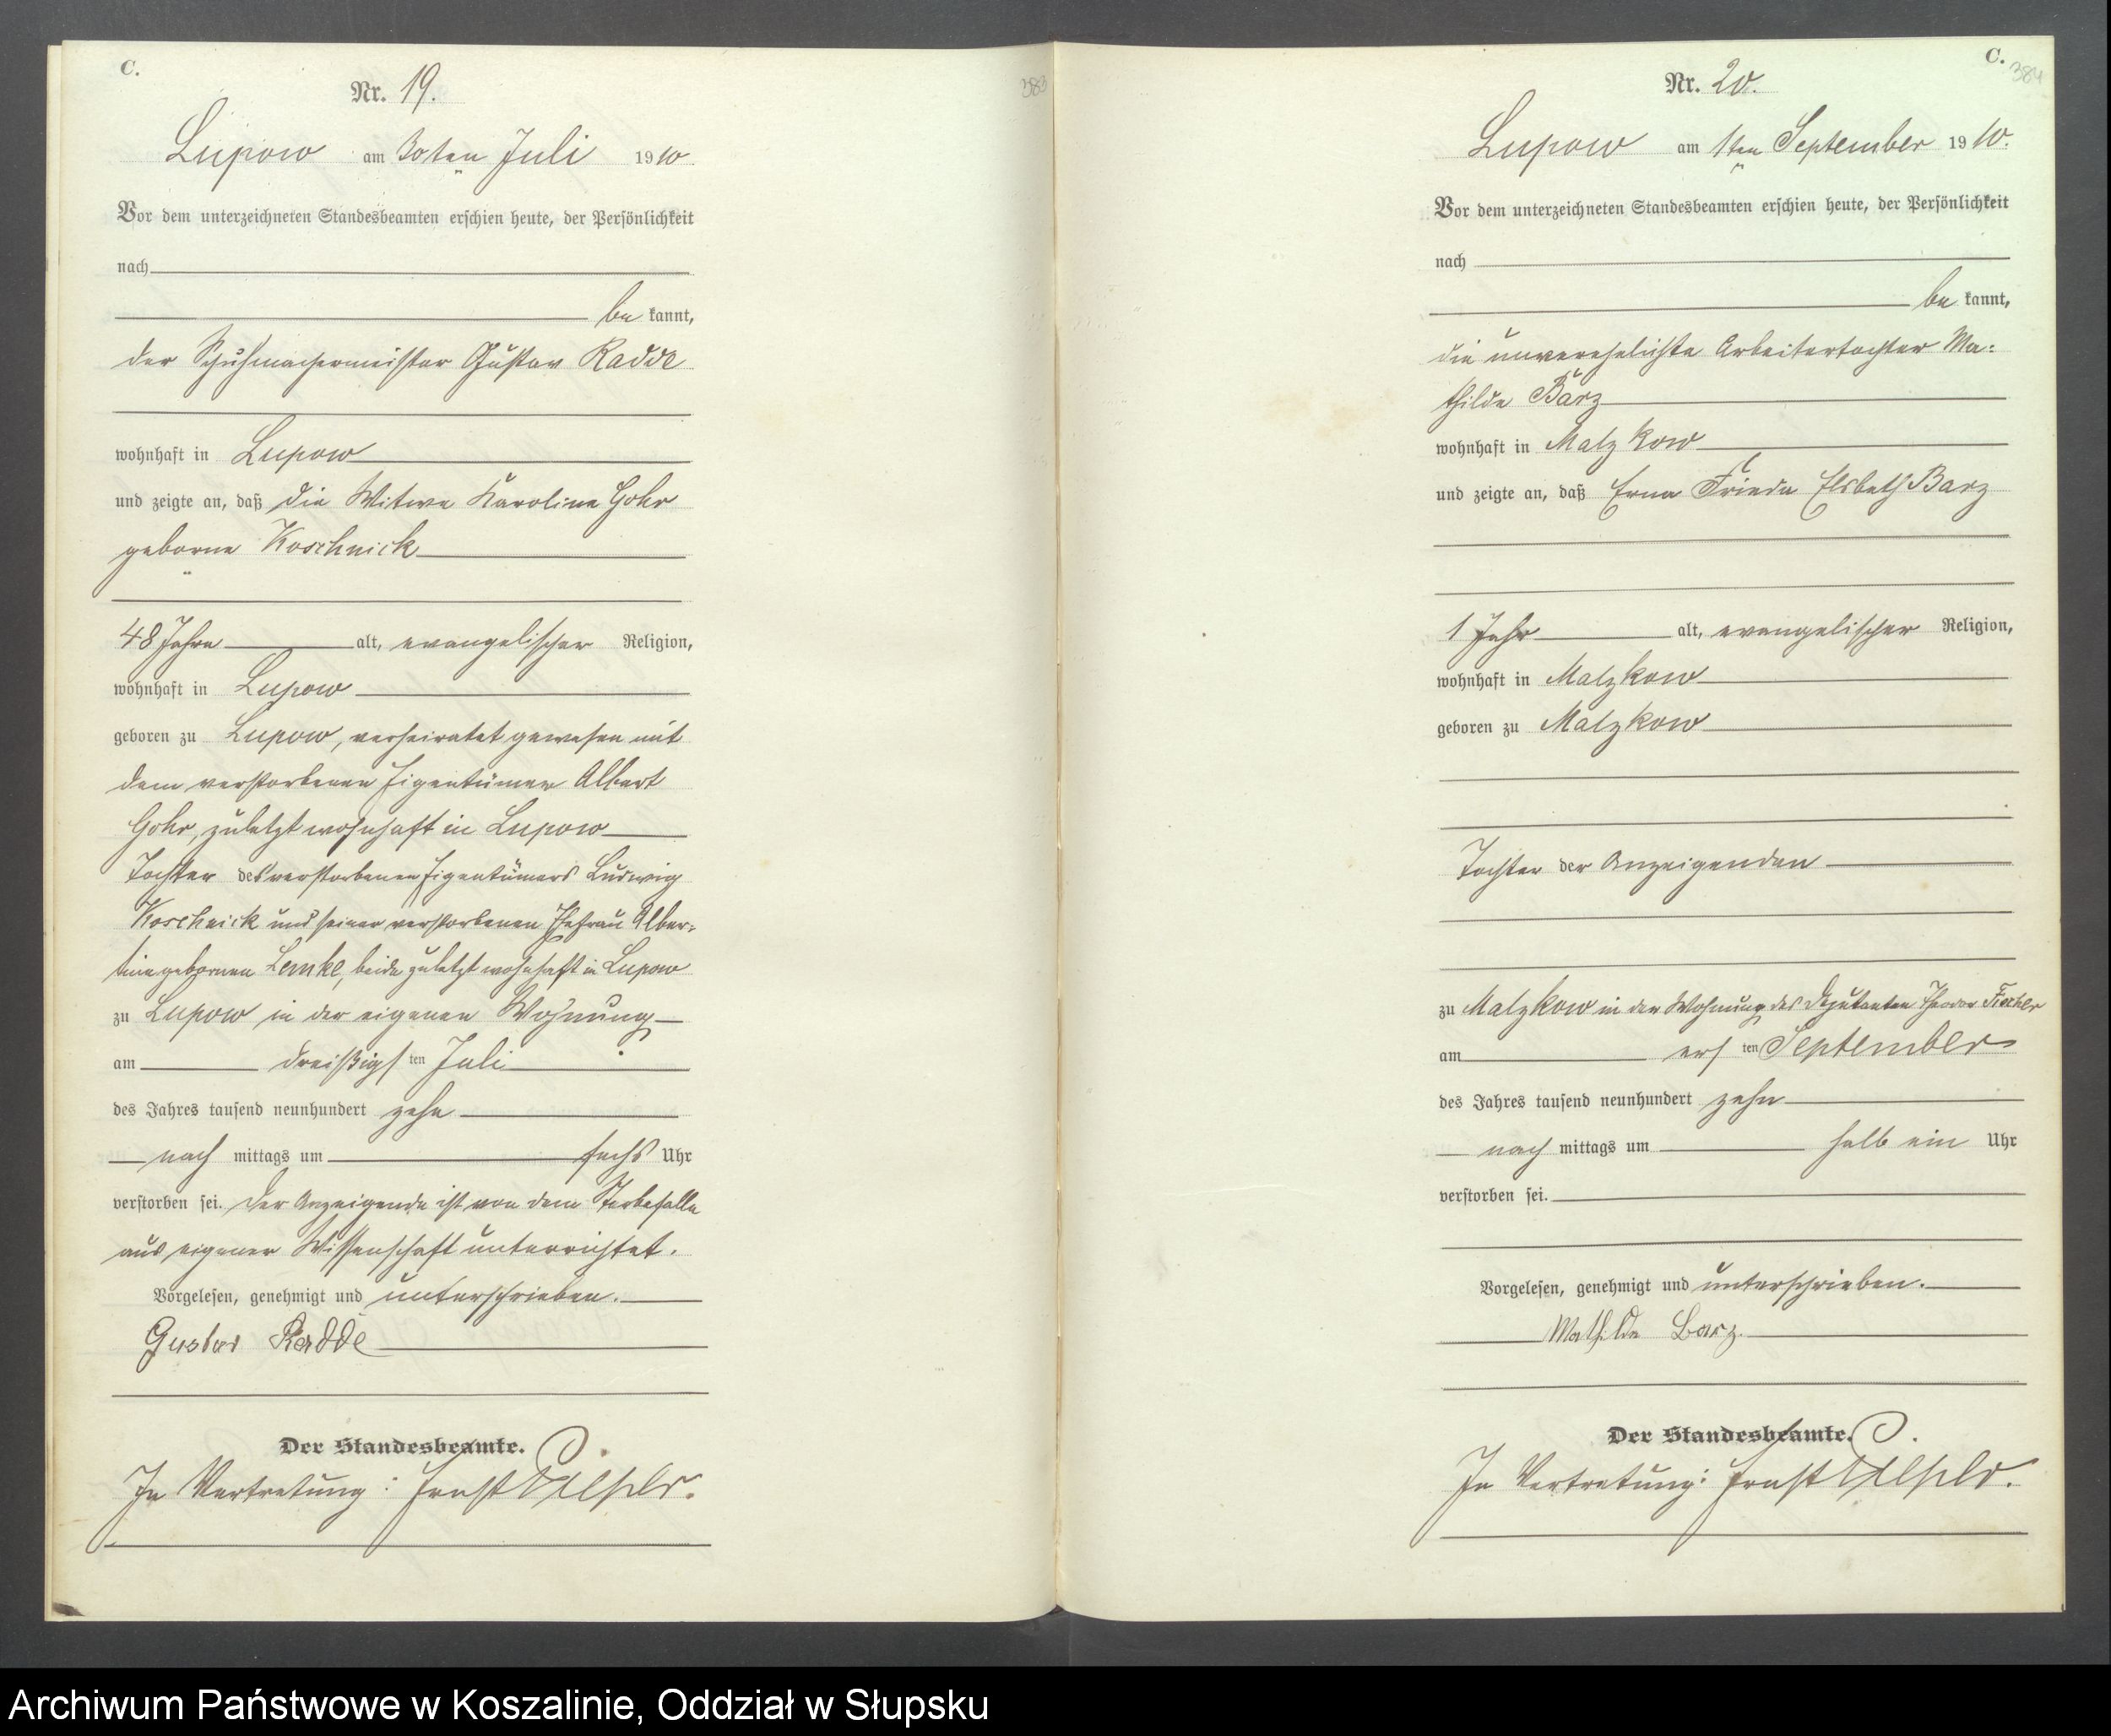 C.
Nr. 19.
383
Lupow am 30ten Juli 1910.
Vor dem unterzeichneten Standesbeamten erschien heute, der Persönlichkeit
nach
be kannt,
der Schuhmachermeister Gustav Radde
wohnhaft in Lupow
und zeigte an, daß die Witwe Karoline Gohr
geborne Koschnick
48 Jahre alt, evangelischer Religion,
wohnhaft in Lupow
geboren zu Lupow, verheiratet gewesen mit
dem verstorbenen Eigentümer Albert
Gohr, zuletzt wohnhaft in Lupow
Tochter des verstorbenen Eigentümers Ludwig
Koschnick und seiner verstorbenen Ehefrau Alber=
tine gebornen Lemke, beide zuletzt wohnhaft in Lupow
zu Lupow in der eigenen Wohnung
am dreißigsten Juli
des Jahres tausend neunhundert zehn
nach mittags um sechs Uhr
verstorben sei. Der Anzeigende ist von dem Sterbefalle
aus eigener Wissenschaft unterrichtet.
Vorgelesen, genehmigt und unterschrieben.
Gustav Radde
Der Standesbeamte.
In Vertretung: Ernst
C.
384
Nr. 20.
Lupow am 1ten September 1910.
Vor dem unterzeichneten Standesbeamten erschien heute, der Persönlichkeit
nach
be kannt,
die unverehelichte Arbeitertochter Ma=
thilde Barz
wohnhaft in Malzkow
und zeigte an, daß Erna Frieda Elsbeth Barz
1 Jahr alt, evangelischer Religion,
wohnhaft in Malzkow
geboren zu Malzkow
Tochter der Anzeigenden
zu Malzkow in der Wohnung des Deputanten Theodor
am ersten September
des Jahres tausend neunhundert zehn
nach mittags um halb ein Uhr
verstorben sei.
Vorgelesen, genehmigt und unterschrieben.
Mathilde Barz.
Der Standesbeamte.
In Vertretung: Ernst
Archiwum Państwowe w Koszalinie, Oddział w Słupsku